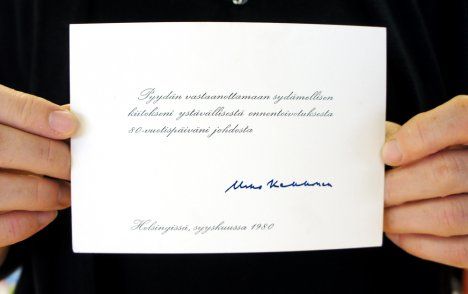 Pyydän vastaanottamaan sydämellisen
kiitokseni ystävällisestä onnentoivotuksesta
80-vuotispäiväni johdosta
Urho Kekkonen
Helsingissä, syyskuussa 1980